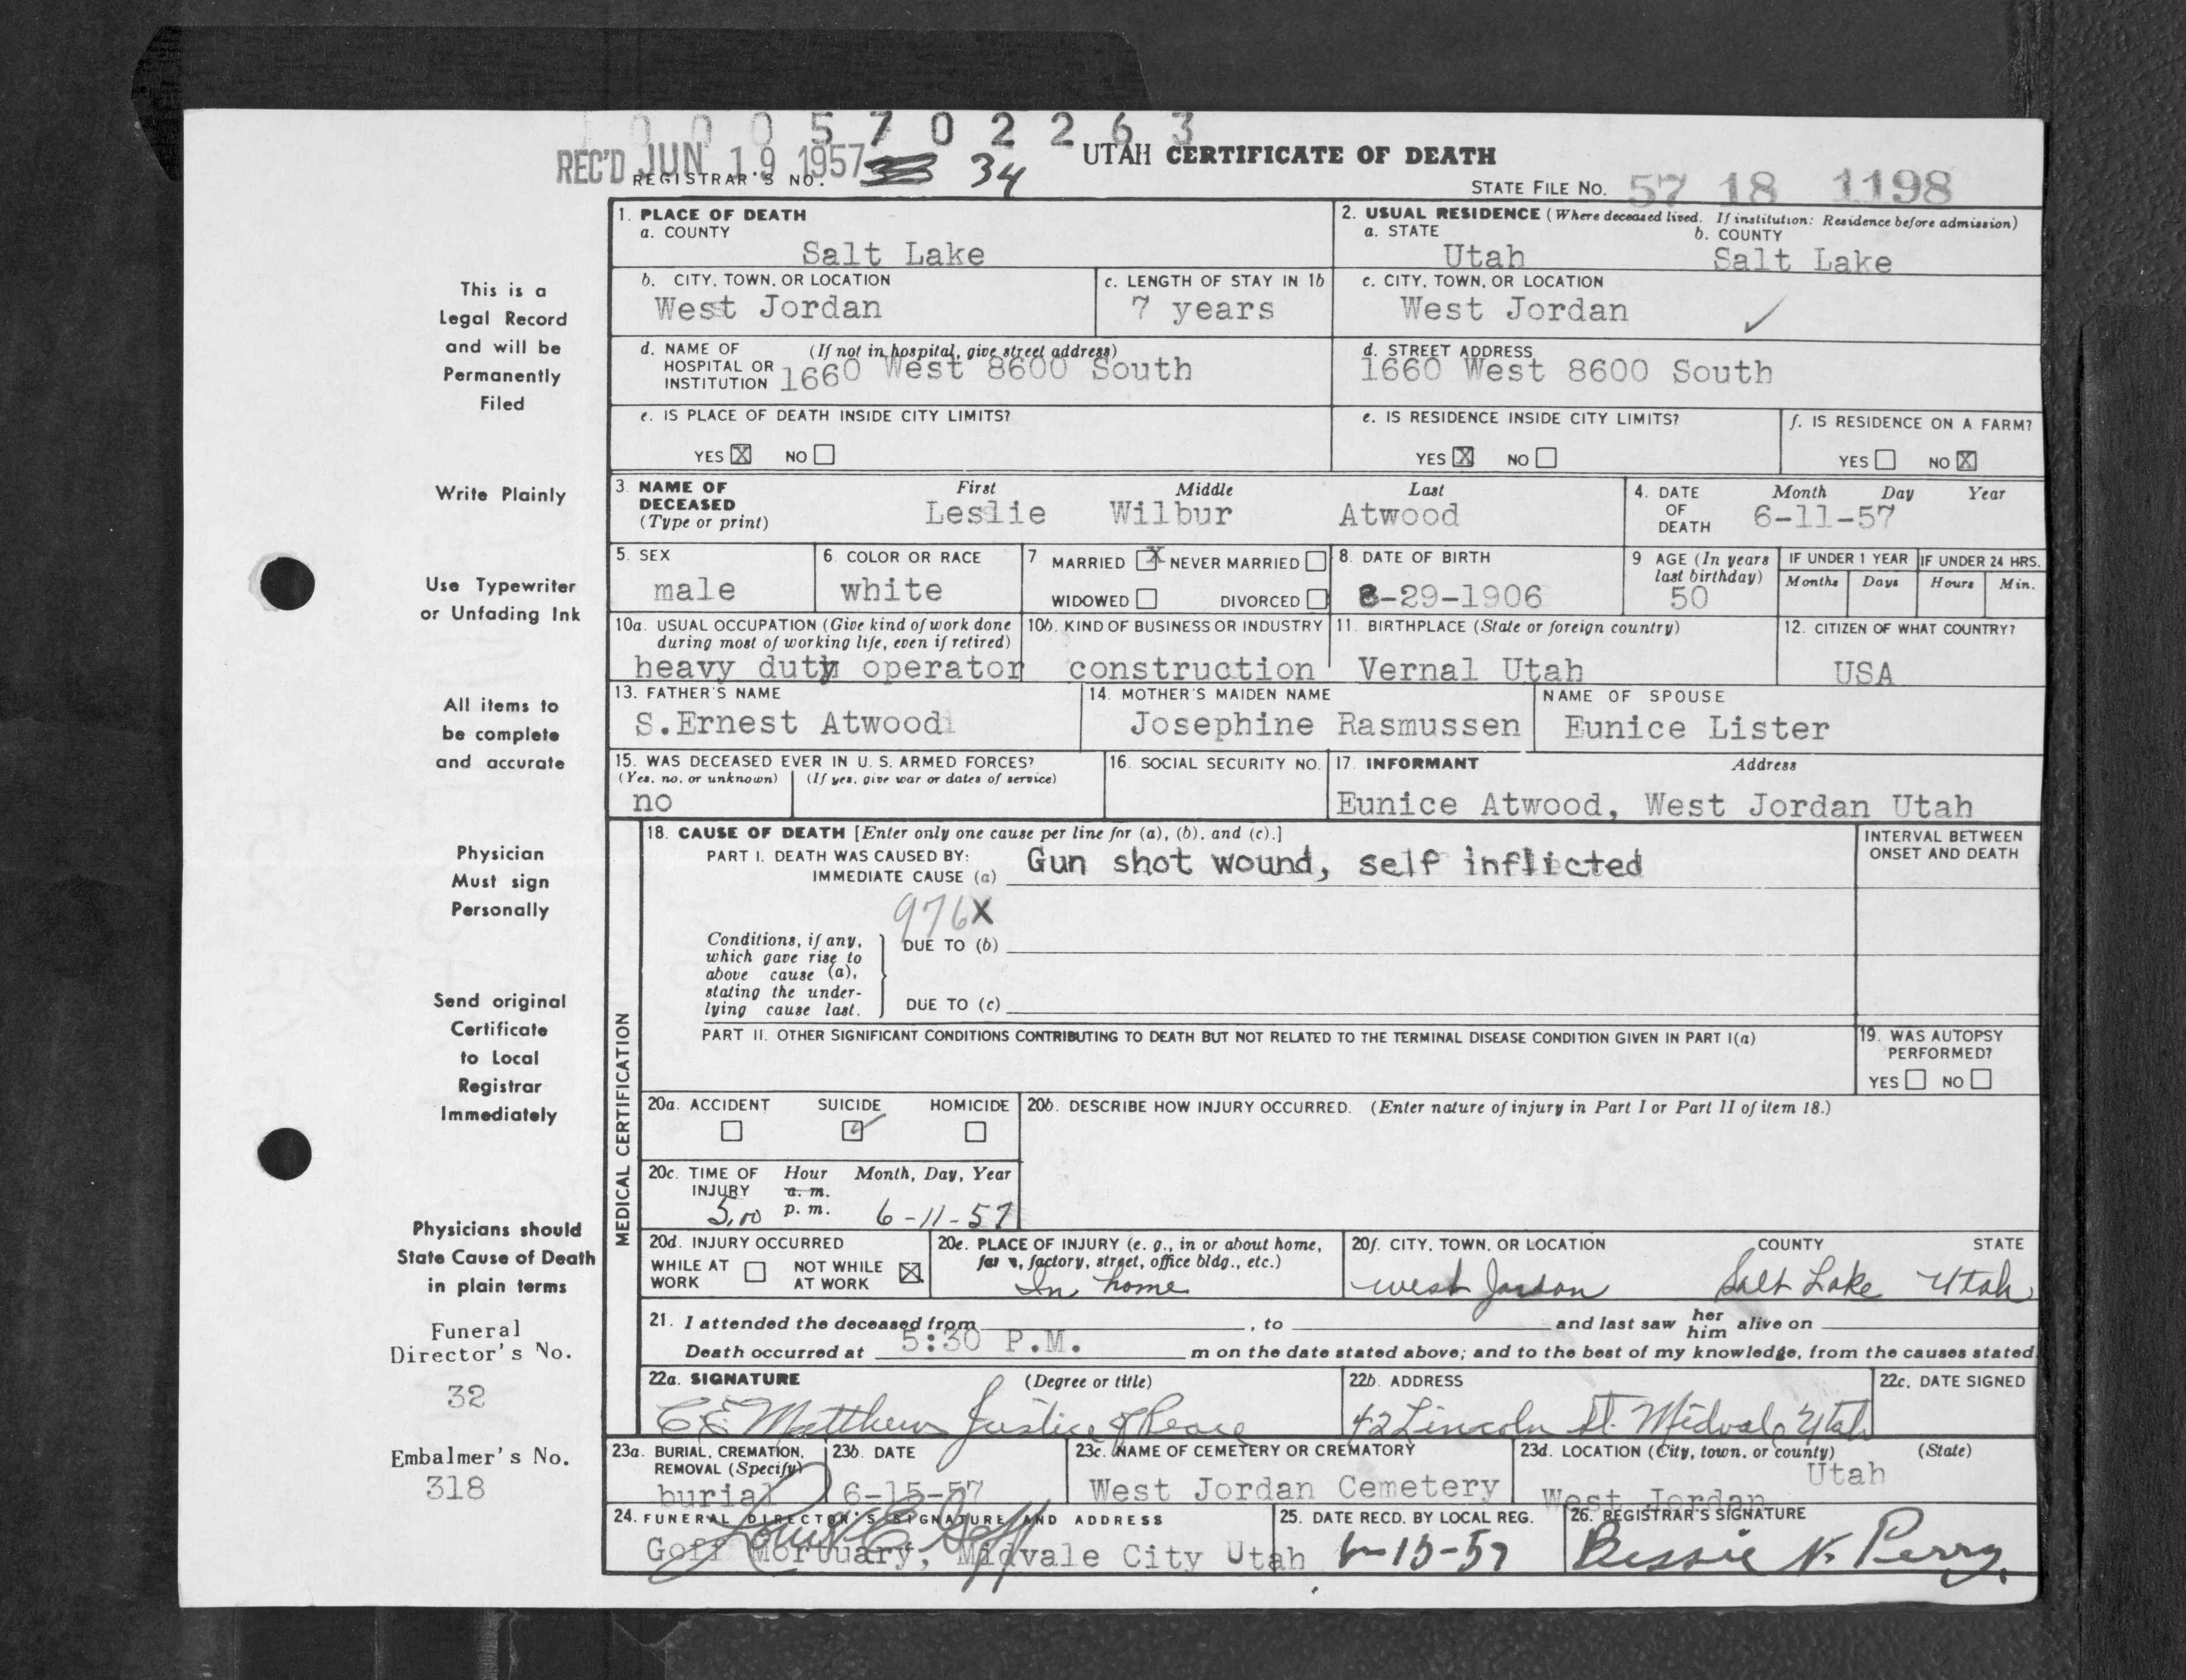 1 0 0 0 5 7 0 2 2 6 3
REC'D JUN 19 1957
REGISTRAR'S NO. 34
UTAH CERTIFICATE OF DEATH
STATE FILE NO. 57 18 1198
This is a
Legal Record
and will be
Permanently
Filed
Write Plainly
Use Typewriter
or Unfading Ink
All items to
be complete
and accurate
Physician
Must sign
Personally
Send original
Certificate
to Local
Registrar
Immediately
Physicians should
State Cause of Death
in plain terms
Funeral
Director's No.
32
Embalmer's No.
318
1. PLACE OF DEATH
a. COUNTY
Salt Lake
2. USUAL RESIDENCE (Where deceased lived. If institution: Residence before admission)
a. STATE b. COUNTY
Utah Salt Lake
b. CITY, TOWN, OR LOCATION
West Jordan
c. LENGTH OF STAY IN 1b
7 years
c. CITY, TOWN, OR LOCATION
West Jordan ✓
d. NAME OF (If not in hospital, give street address)
HOSPITAL OR
INSTITUTION 1660 West 8600 South
d. STREET ADDRESS
1660 West 8600 South
e. IS PLACE OF DEATH INSIDE CITY LIMITS?
YES ☒ NO ☐
e. IS RESIDENCE INSIDE CITY LIMITS?
YES ☒ NO ☐
f. IS RESIDENCE ON A FARM?
YES ☐ NO ☒
3. NAME OF
DECEASED
(Type or print)
First Middle Last
Leslie Wilbur Atwood
4. DATE
OF
DEATH
Month Day Year
6-11-57
5. SEX
male
6. COLOR OR RACE
white
7 MARRIED ☒ NEVER MARRIED ☐
WIDOWED ☐ DIVORCED ☐
8. DATE OF BIRTH
8-29-1906
9 AGE (In years
last birthday)
50
IF UNDER 1 YEAR
Months Days
IF UNDER 24 HRS.
Hours Min.
10a. USUAL OCCUPATION (Give kind of work done
during most of working life, even if retired)
heavy duty operator
10b. KIND OF BUSINESS OR INDUSTRY
construction
11. BIRTHPLACE (State or foreign country)
Vernal Utah
12. CITIZEN OF WHAT COUNTRY?
USA
13. FATHER'S NAME
S.Ernest Atwood
14. MOTHER'S MAIDEN NAME
Josephine Rasmussen
NAME OF SPOUSE
Eunice Lister
15. WAS DECEASED EVER IN U. S. ARMED FORCES?
(Yes, no, or unknown) (If yes, give war or dates of service)
no
16. SOCIAL SECURITY NO.
17. INFORMANT Address
Eunice Atwood, West Jordan Utah
MEDICAL CERTIFICATION
18. CAUSE OF DEATH [Enter only one cause per line for (a), (b), and (c).]
PART I. DEATH WAS CAUSED BY:
IMMEDIATE CAUSE (a) Gun shot wound, self inflicted
INTERVAL BETWEEN
ONSET AND DEATH
976X
Conditions, if any,
which gave rise to
above cause (a),
stating the under-
lying cause last.
DUE TO (b)
DUE TO (c)
PART II. OTHER SIGNIFICANT CONDITIONS CONTRIBUTING TO DEATH BUT NOT RELATED TO THE TERMINAL DISEASE CONDITION GIVEN IN PART I(a)
19. WAS AUTOPSY
PERFORMED?
YES ☐ NO ☐
20a. ACCIDENT SUICIDE HOMICIDE
☐ ☑ ☐
20b. DESCRIBE HOW INJURY OCCURRED. (Enter nature of injury in Part I or Part II of item 18.)
20c. TIME OF Hour Month, Day, Year
INJURY a. m.
5,00 p. m. 6-11-57
20d. INJURY OCCURRED
WHILE AT WORK ☐ NOT WHILE AT WORK ☒
20e. PLACE OF INJURY (e. g., in or about home,
farm, factory, street, office bldg., etc.)
In home
20f. CITY, TOWN, OR LOCATION COUNTY STATE
West Jordan Salt Lake Utah
21. I attended the deceased from , to and last saw her him alive on
Death occurred at 5:30 P.M. m on the date stated above; and to the best of my knowledge, from the causes stated
22a. SIGNATURE (Degree or title)
C E Matthews Justice of Peace
22b. ADDRESS
42 Lincoln St. Midvale Utah
22c. DATE SIGNED
23a. BURIAL, CREMATION,
REMOVAL (Specify)
burial
23b. DATE
6-15-57
23c. NAME OF CEMETERY OR CREMATORY
West Jordan Cemetery
23d. LOCATION (City, town, or county) (State)
West Jordan Utah
24. FUNERAL DIRECTOR'S SIGNATURE AND ADDRESS
Louis E. Goff
Goff Mortuary, Midvale City Utah
25. DATE RECD. BY LOCAL REG.
6-15-57
26. REGISTRAR'S SIGNATURE
Bessie N. Perry